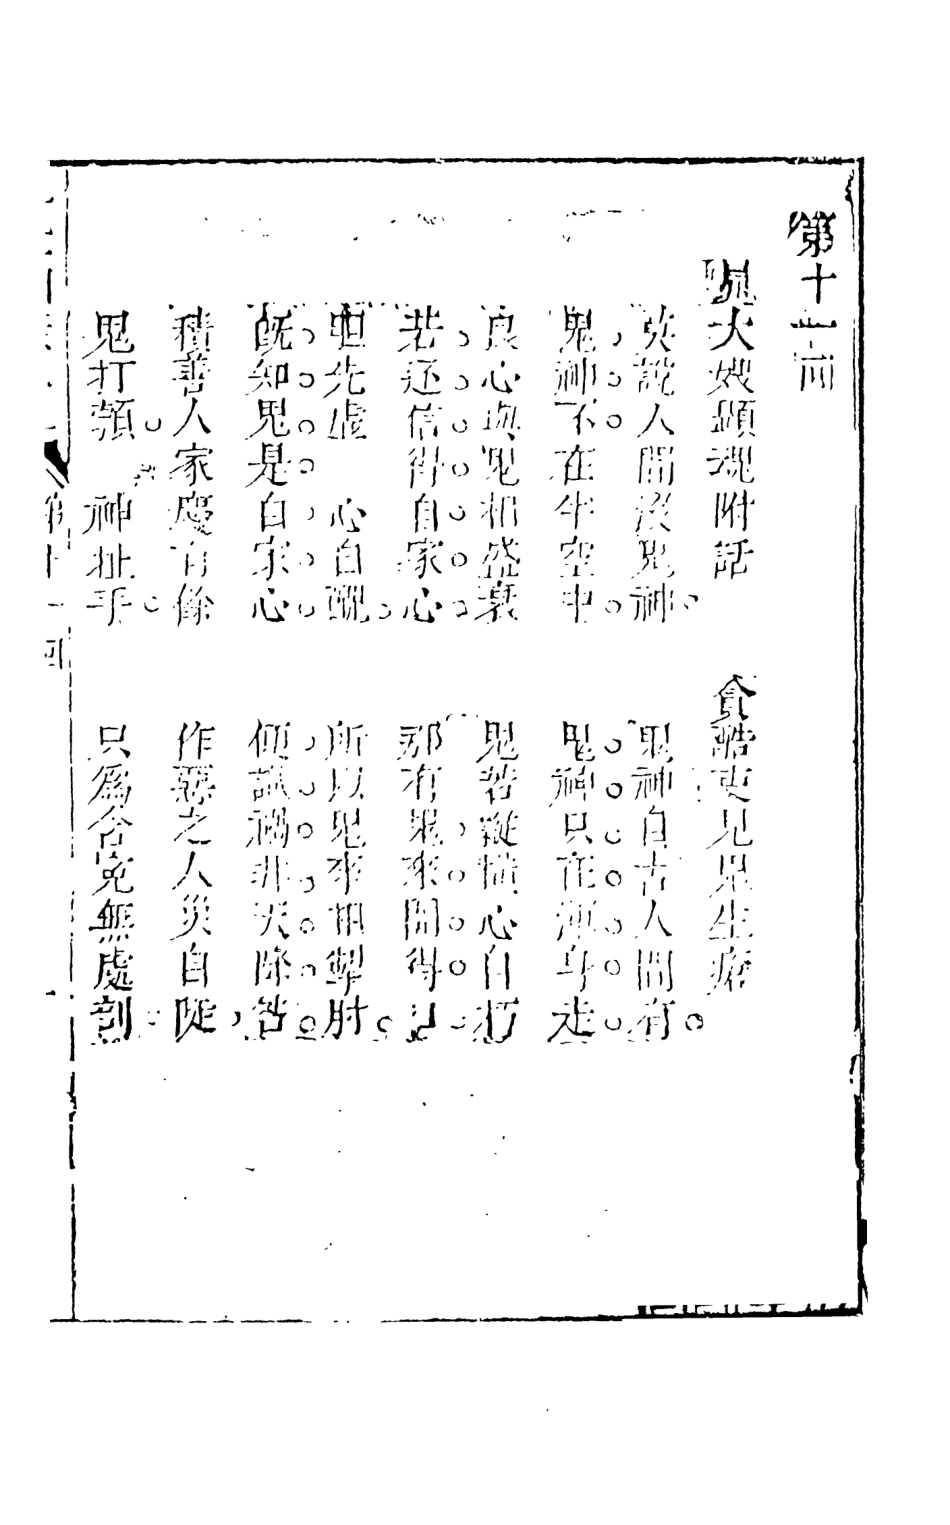 第十一回
晁大嫂顯魂附話　貪酷吏見鬼生瘡
莫說人間沒鬼神　鬼神自古人間有
鬼神不在半空中　鬼神只在渾身走
良心與鬼相盛衰　鬼若縱橫心自朽
若還信得自家心　那有鬼來開得口
膽先虛　心自醜　所以鬼來相掣肘
既知鬼是自家心　便識禍非天降咎
積善人家慶有餘　作惡之人災自陡
鬼打頭　神扯手　只爲含冤無處剖
第十一回